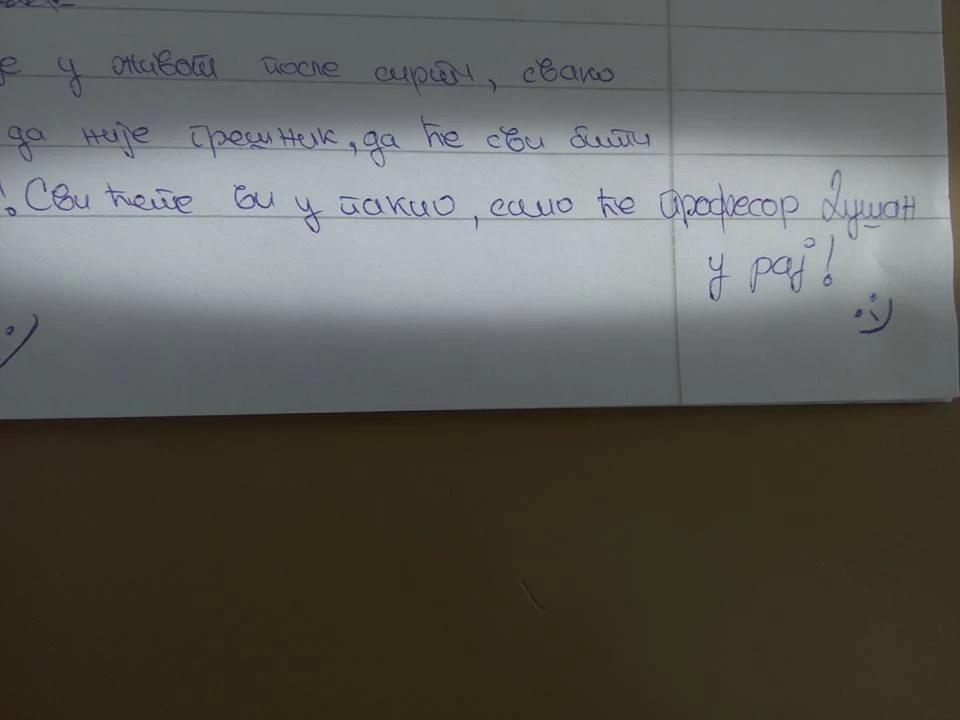 е у живот после смрти, свако
да није грешник, да ће сви бити
!. Сви ћете ви у пакао, само ће професор Душан
у рај!
:)
:)